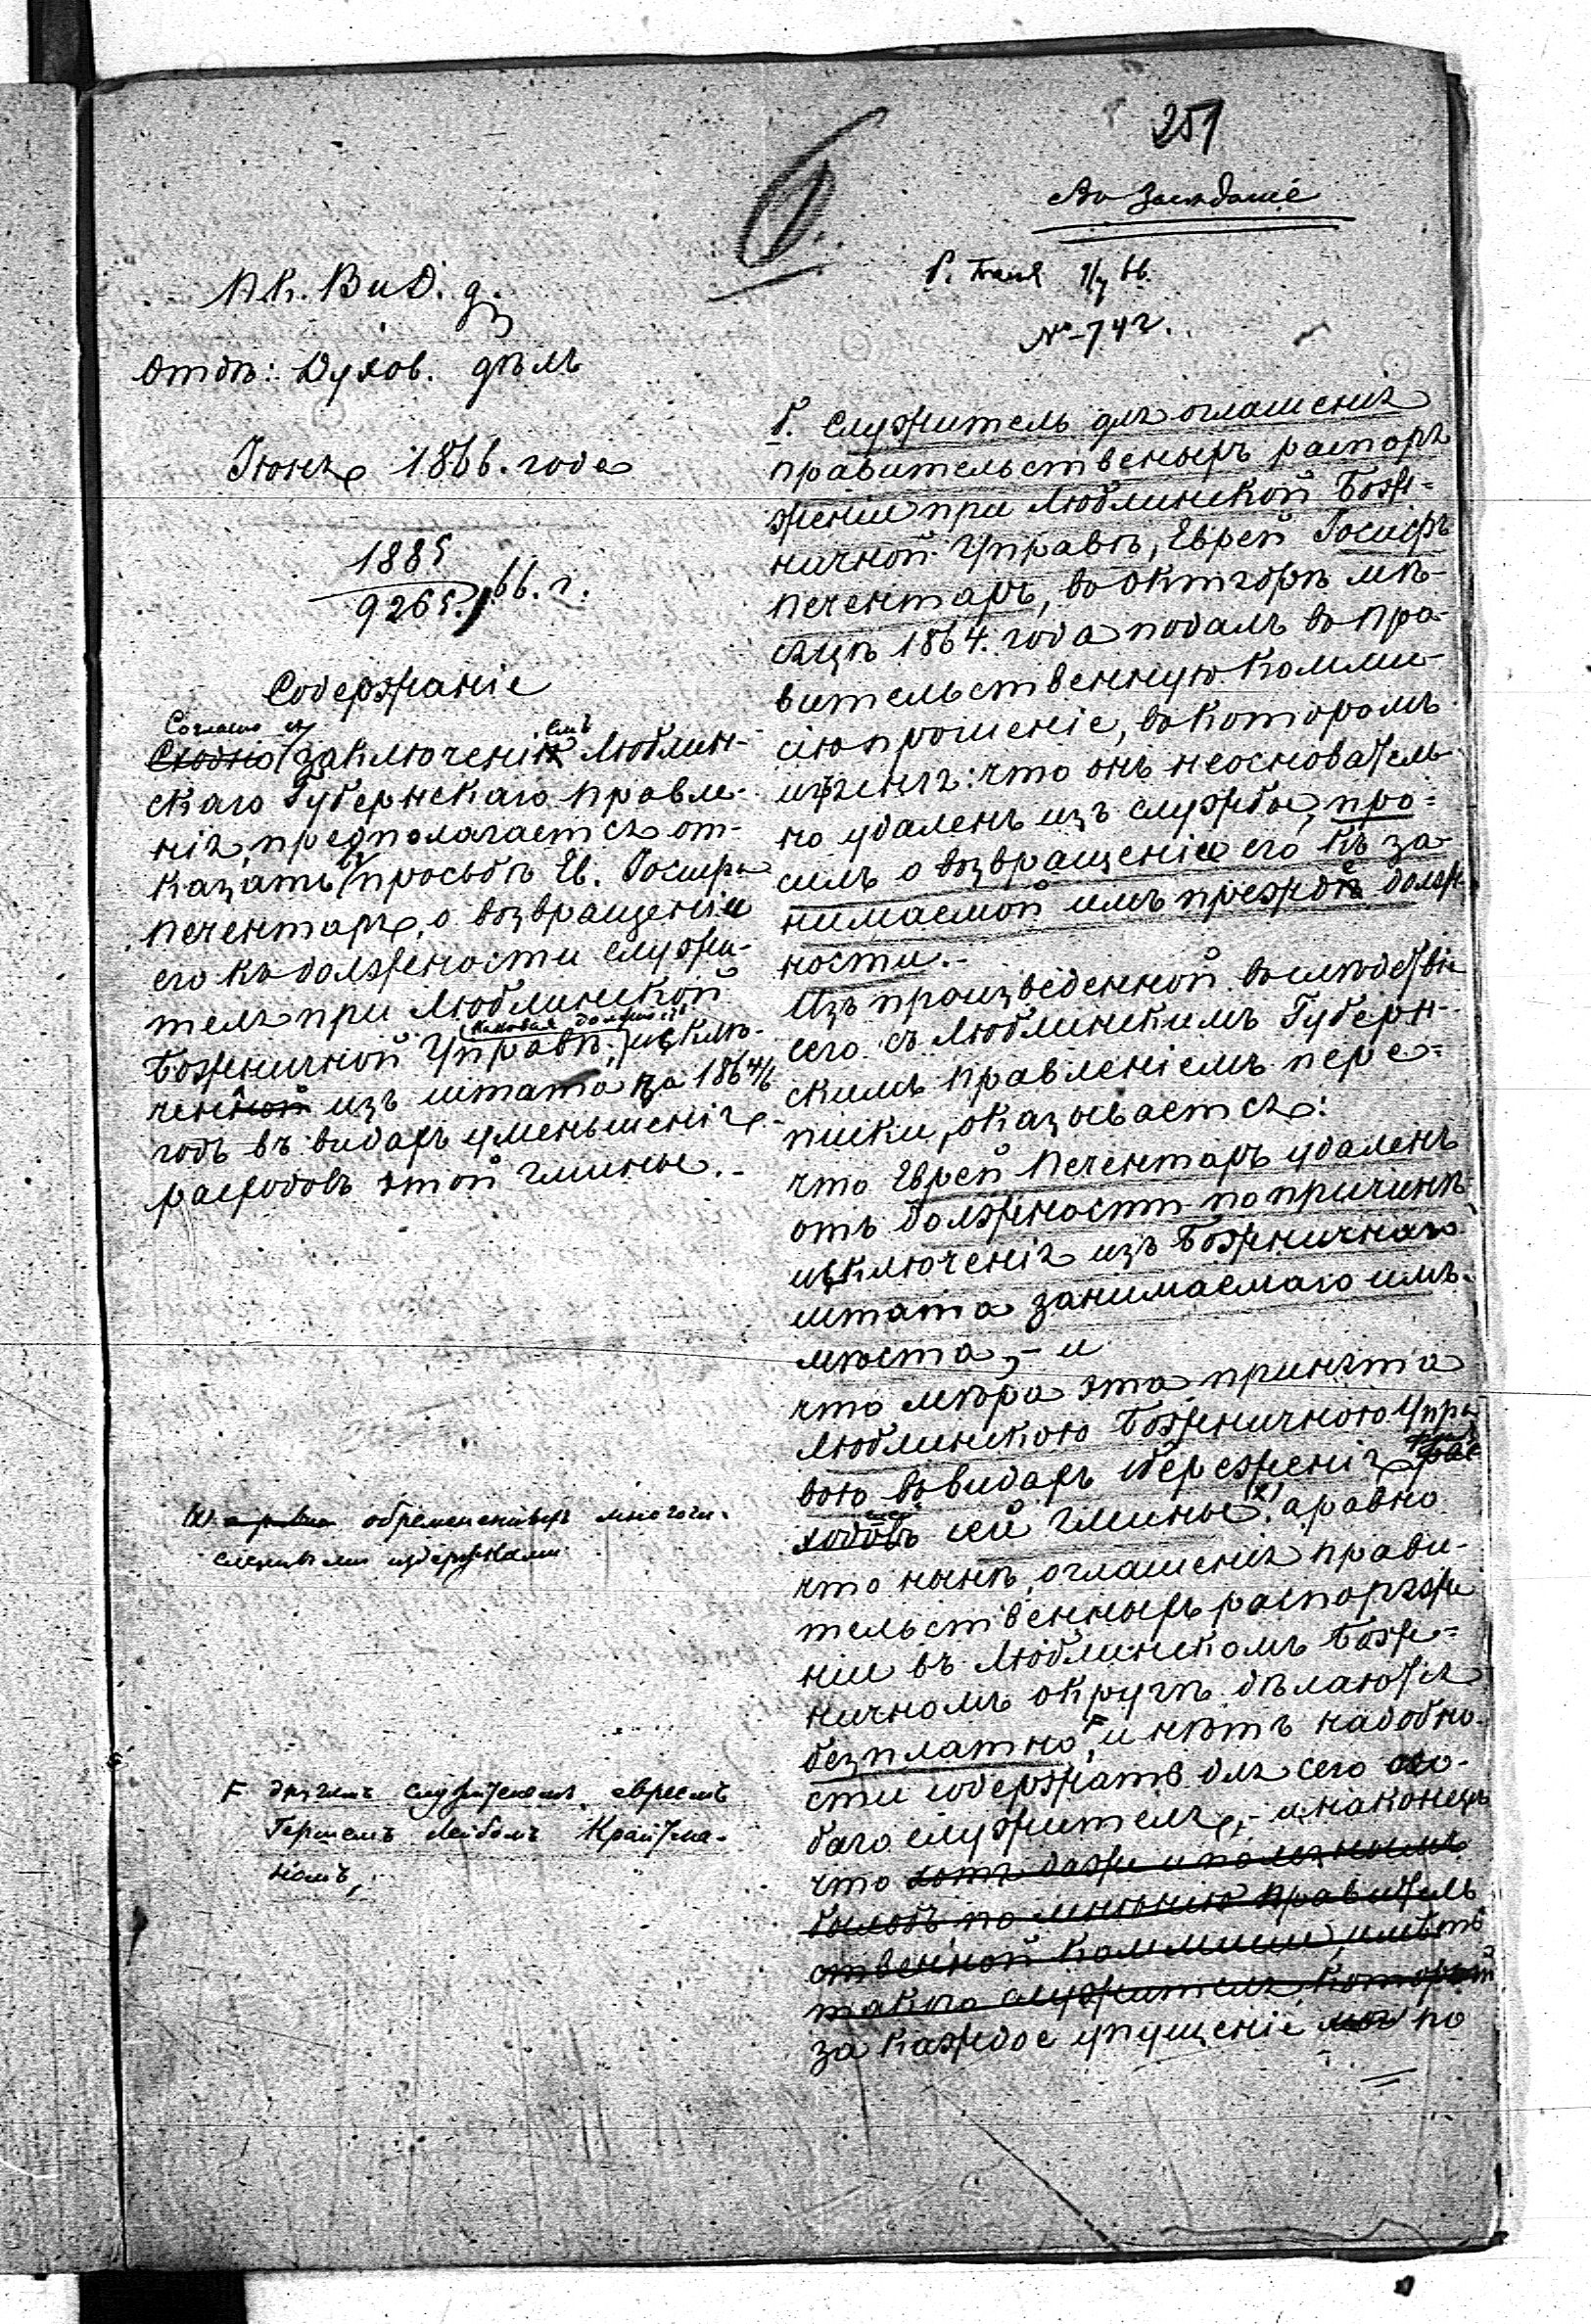 251
Въ Засѣданіе
№ 742.
П. К. Вн. Д. д.
Отдѣ: Духов. дѣлъ
Іюня 1866. года
1885
9265. / 66. г.
Содержаніе
Согласно съ емъ
Сходно заключенія Люблин-
скаго Губернскаго Правле-
нія, предполагается от-
казать въ просьбѣ Ев. Іосифа
Печентаръ, о возвращеніи
его къ должности служи-
теля при Люблинской
Божничной Управѣ, (каковая должность) исклю-
ченной изъ штата на 1864/6
годъ въ видахъ уменьшенія
расходовъ этой гмины.-
(х) а равно обремененныхъ многочи-
сленными издержками
F другимъ служителемъ, евреемъ
Гершемъ Лейбомъ Крайтма-
номъ,
б. Служитель для оглашенія
правительственныхъ распоря
женіи при Люблинской Бож-
ничной Управѣ, Еврей Іосифъ
Печентаръ, въ Октябрѣ мѣ-
сяцѣ 1864. года подалъ въ Пра-
вительственную Коммис-
сію прошеніе, въ которомъ
изъясняя: что онъ неоснователь-
но удаленъ изъ службы, про-
силъ о возвращеніи его къ за-
нимаемой имъ прежде долж-
ности.-
Изъ произведенной въ слѣдствіе
сего съ Люблинскимъ Губерн-
скимъ Правленіемъ пере-
писки, оказывается:
что Еврей Печентаръ удаленъ
отъ должности по причинѣ
исключенія изъ Божничнаго
штата занимаемаго имъ
мѣста,- и
что мѣра эта принята
Люблинскою Божничною Упра
вою въ видахъ сбереженія рас
ходовъ сей гмины (х) а равно
что нынѣ, оглашенія прави-
тельственныхъ распоряже
ніи въ Люблинскомъ Бож-
ничномъ округѣ дѣлаются
безплатно F, и нѣтъ надобно-
сти содержать для сего осо-
баго служителя,- и наконецъ
что хотя даже и полезнымъ
былобъ, по мнѣнію Правитель
ственной Коммисіи, имѣть
такого служителя который
за каждое упущеніе мог по